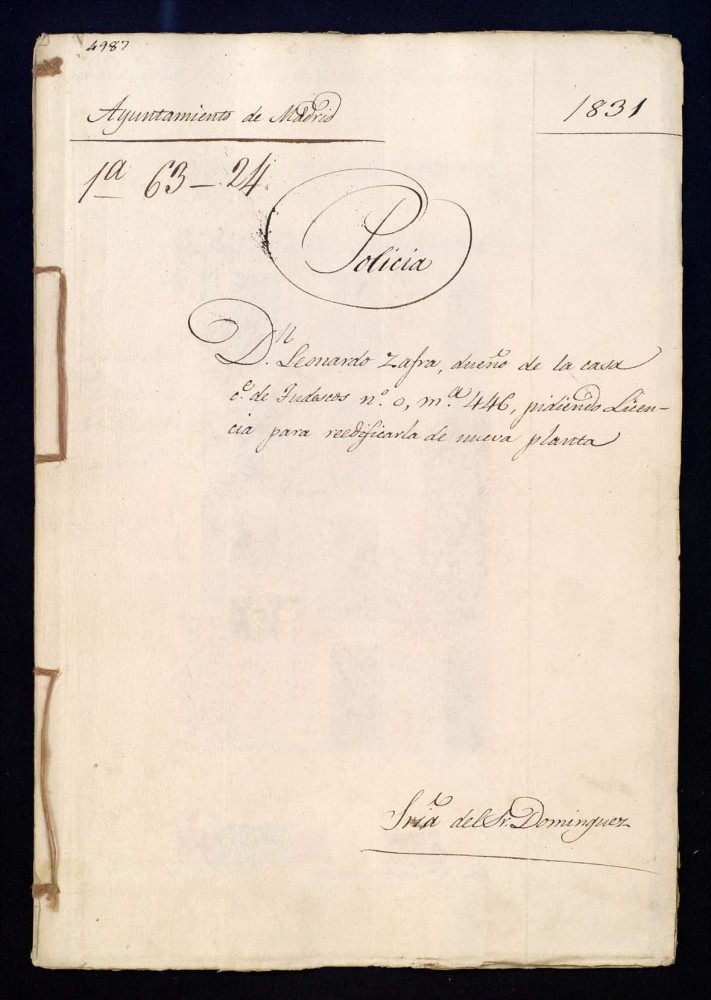 4987
Ayuntamiento de Madrid
1831
1ª 63-24.
Policia
D.n Leonardo Zafra, dueño de la casa
c.e de Judescos nº. 0, m.a 446, pidiendo Licen-
cia para reedificarla de nueva planta
Sriã del Sr. Dominguez